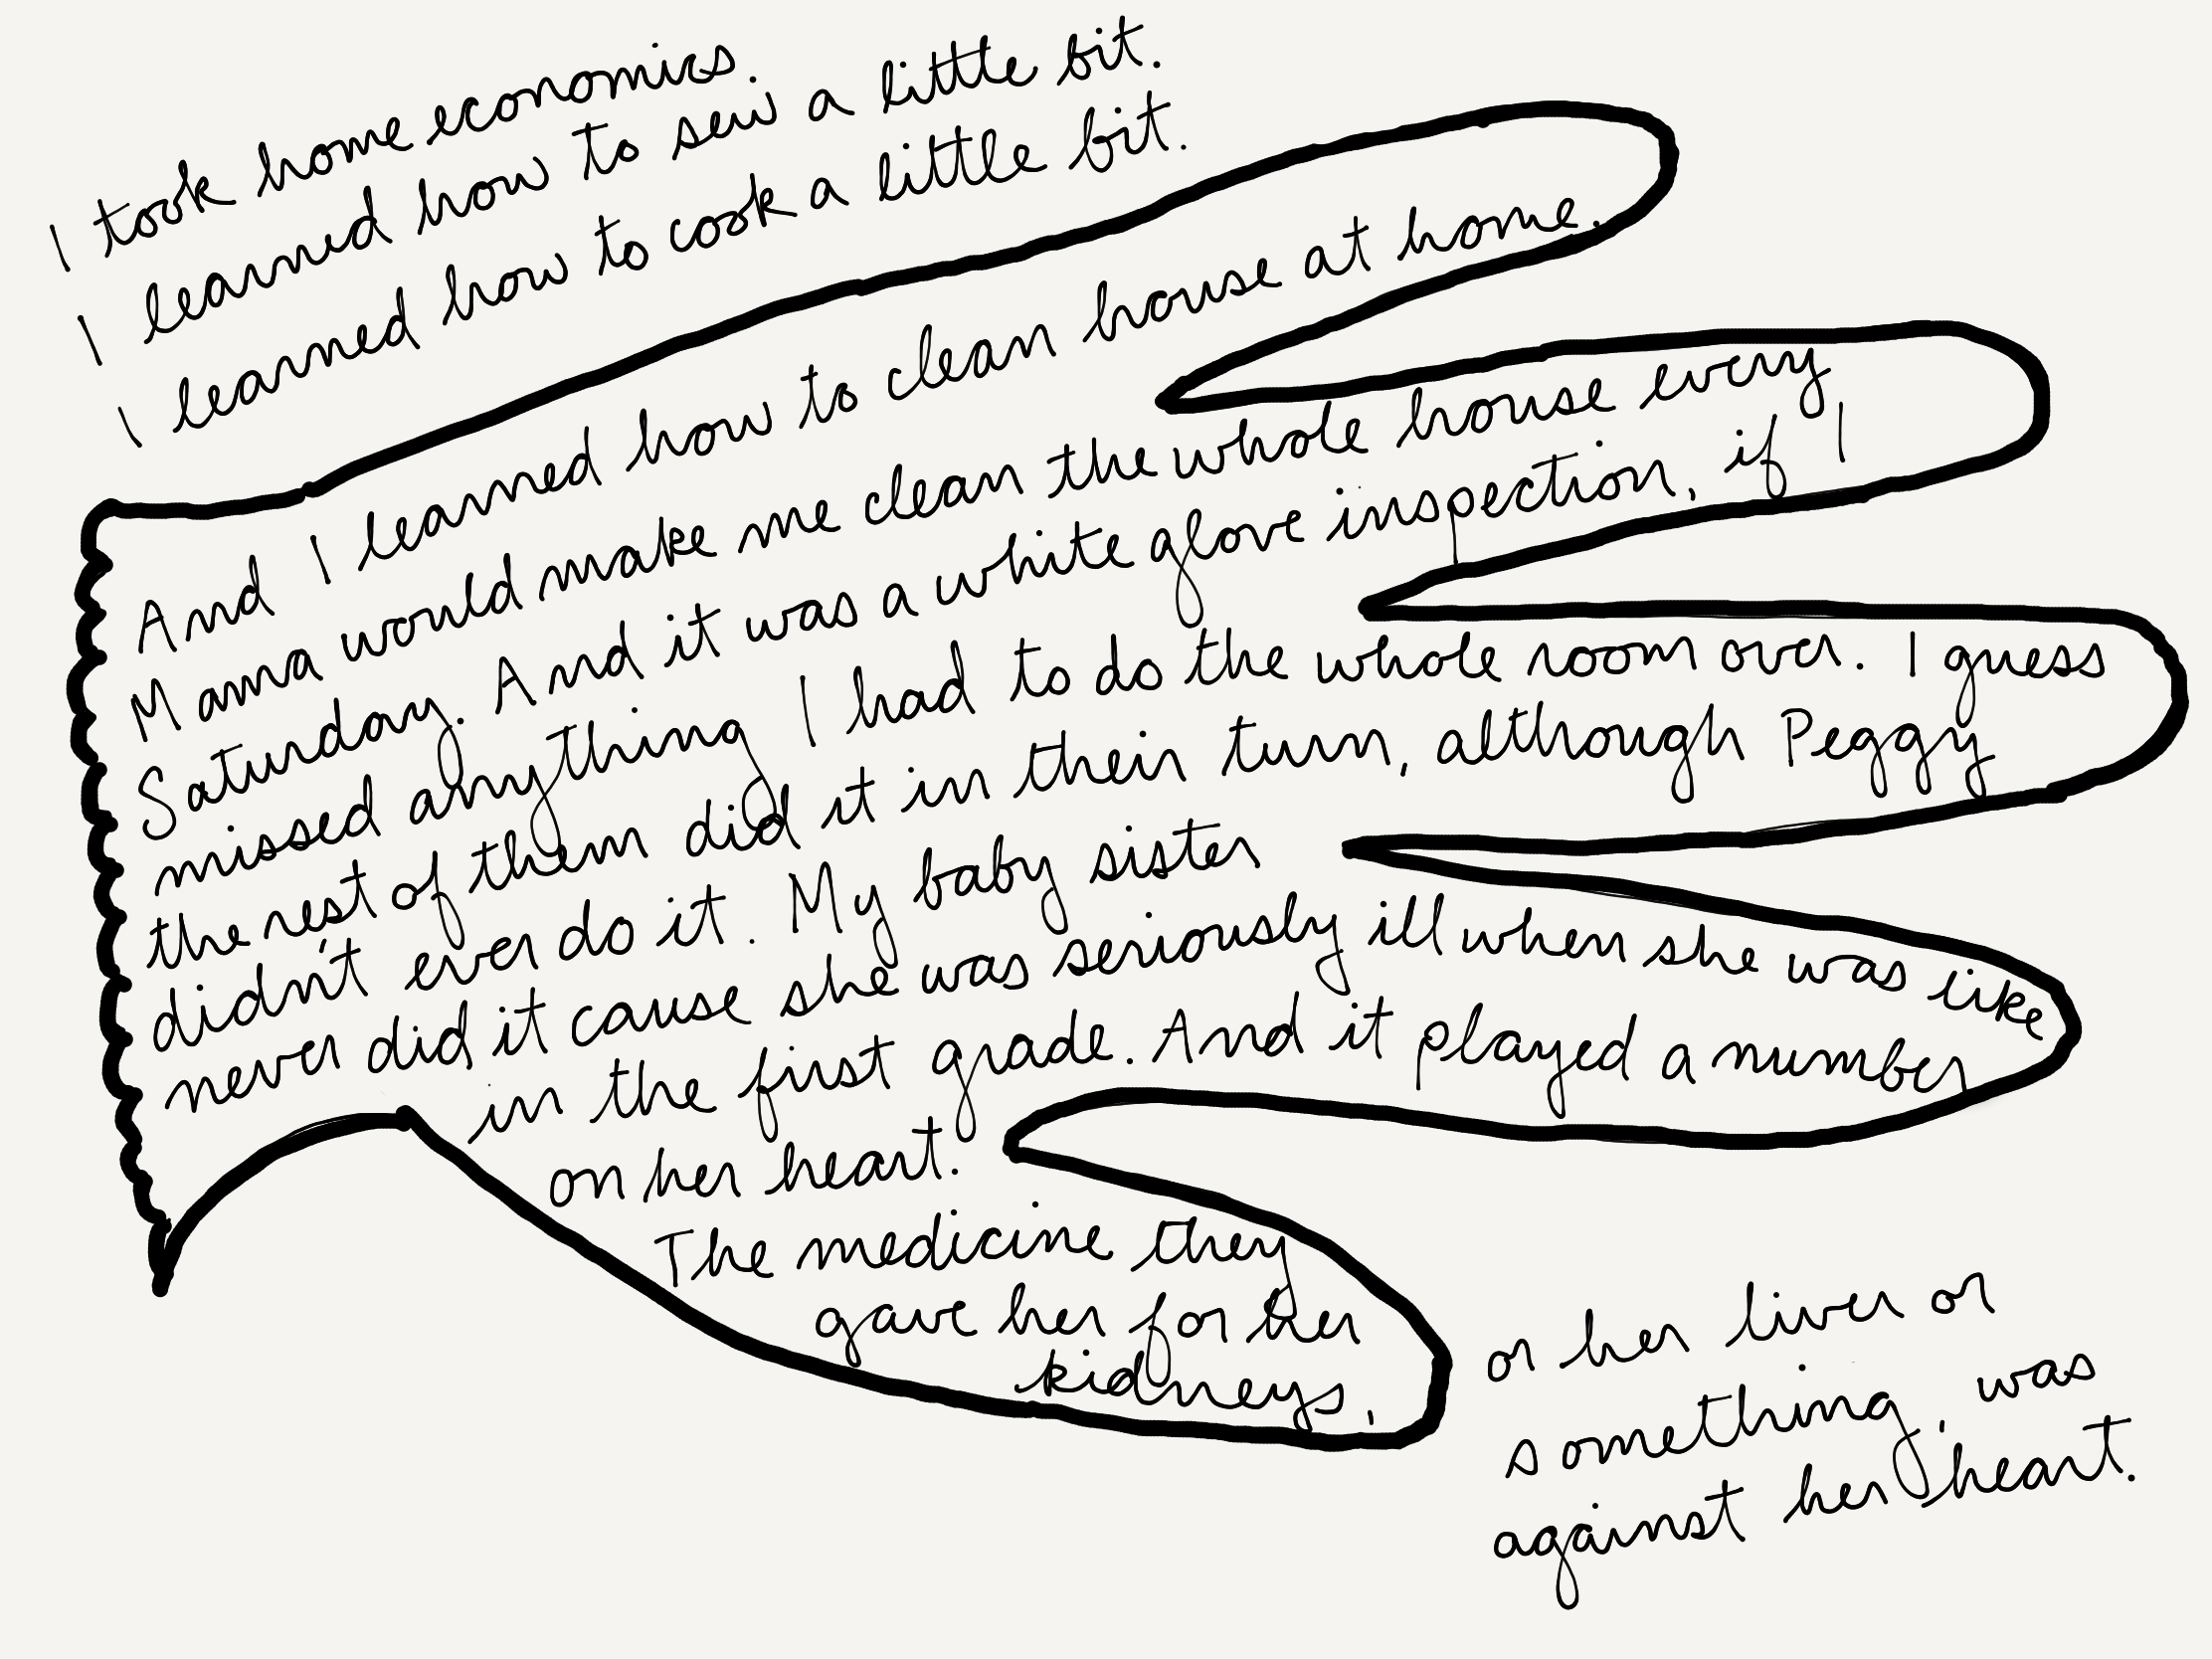 I took home economics.
I learned how to sew a little bit.
I learned how to cook a little bit.
And I learned how to clean house at home.
Mama would make me clean the whole house every
Saturday. And it was a white glove inspection, if I
missed anything I had to do the whole room over. I guess
the rest of them did it in their turn, although Peggy
didn't ever do it. My baby sister
never did it cause she was seriously ill when she was like
in the first grade. And it played a number
on her heart.
The medicine they
gave her for her
kidneys,
or her liver or
something, was
against her heart.